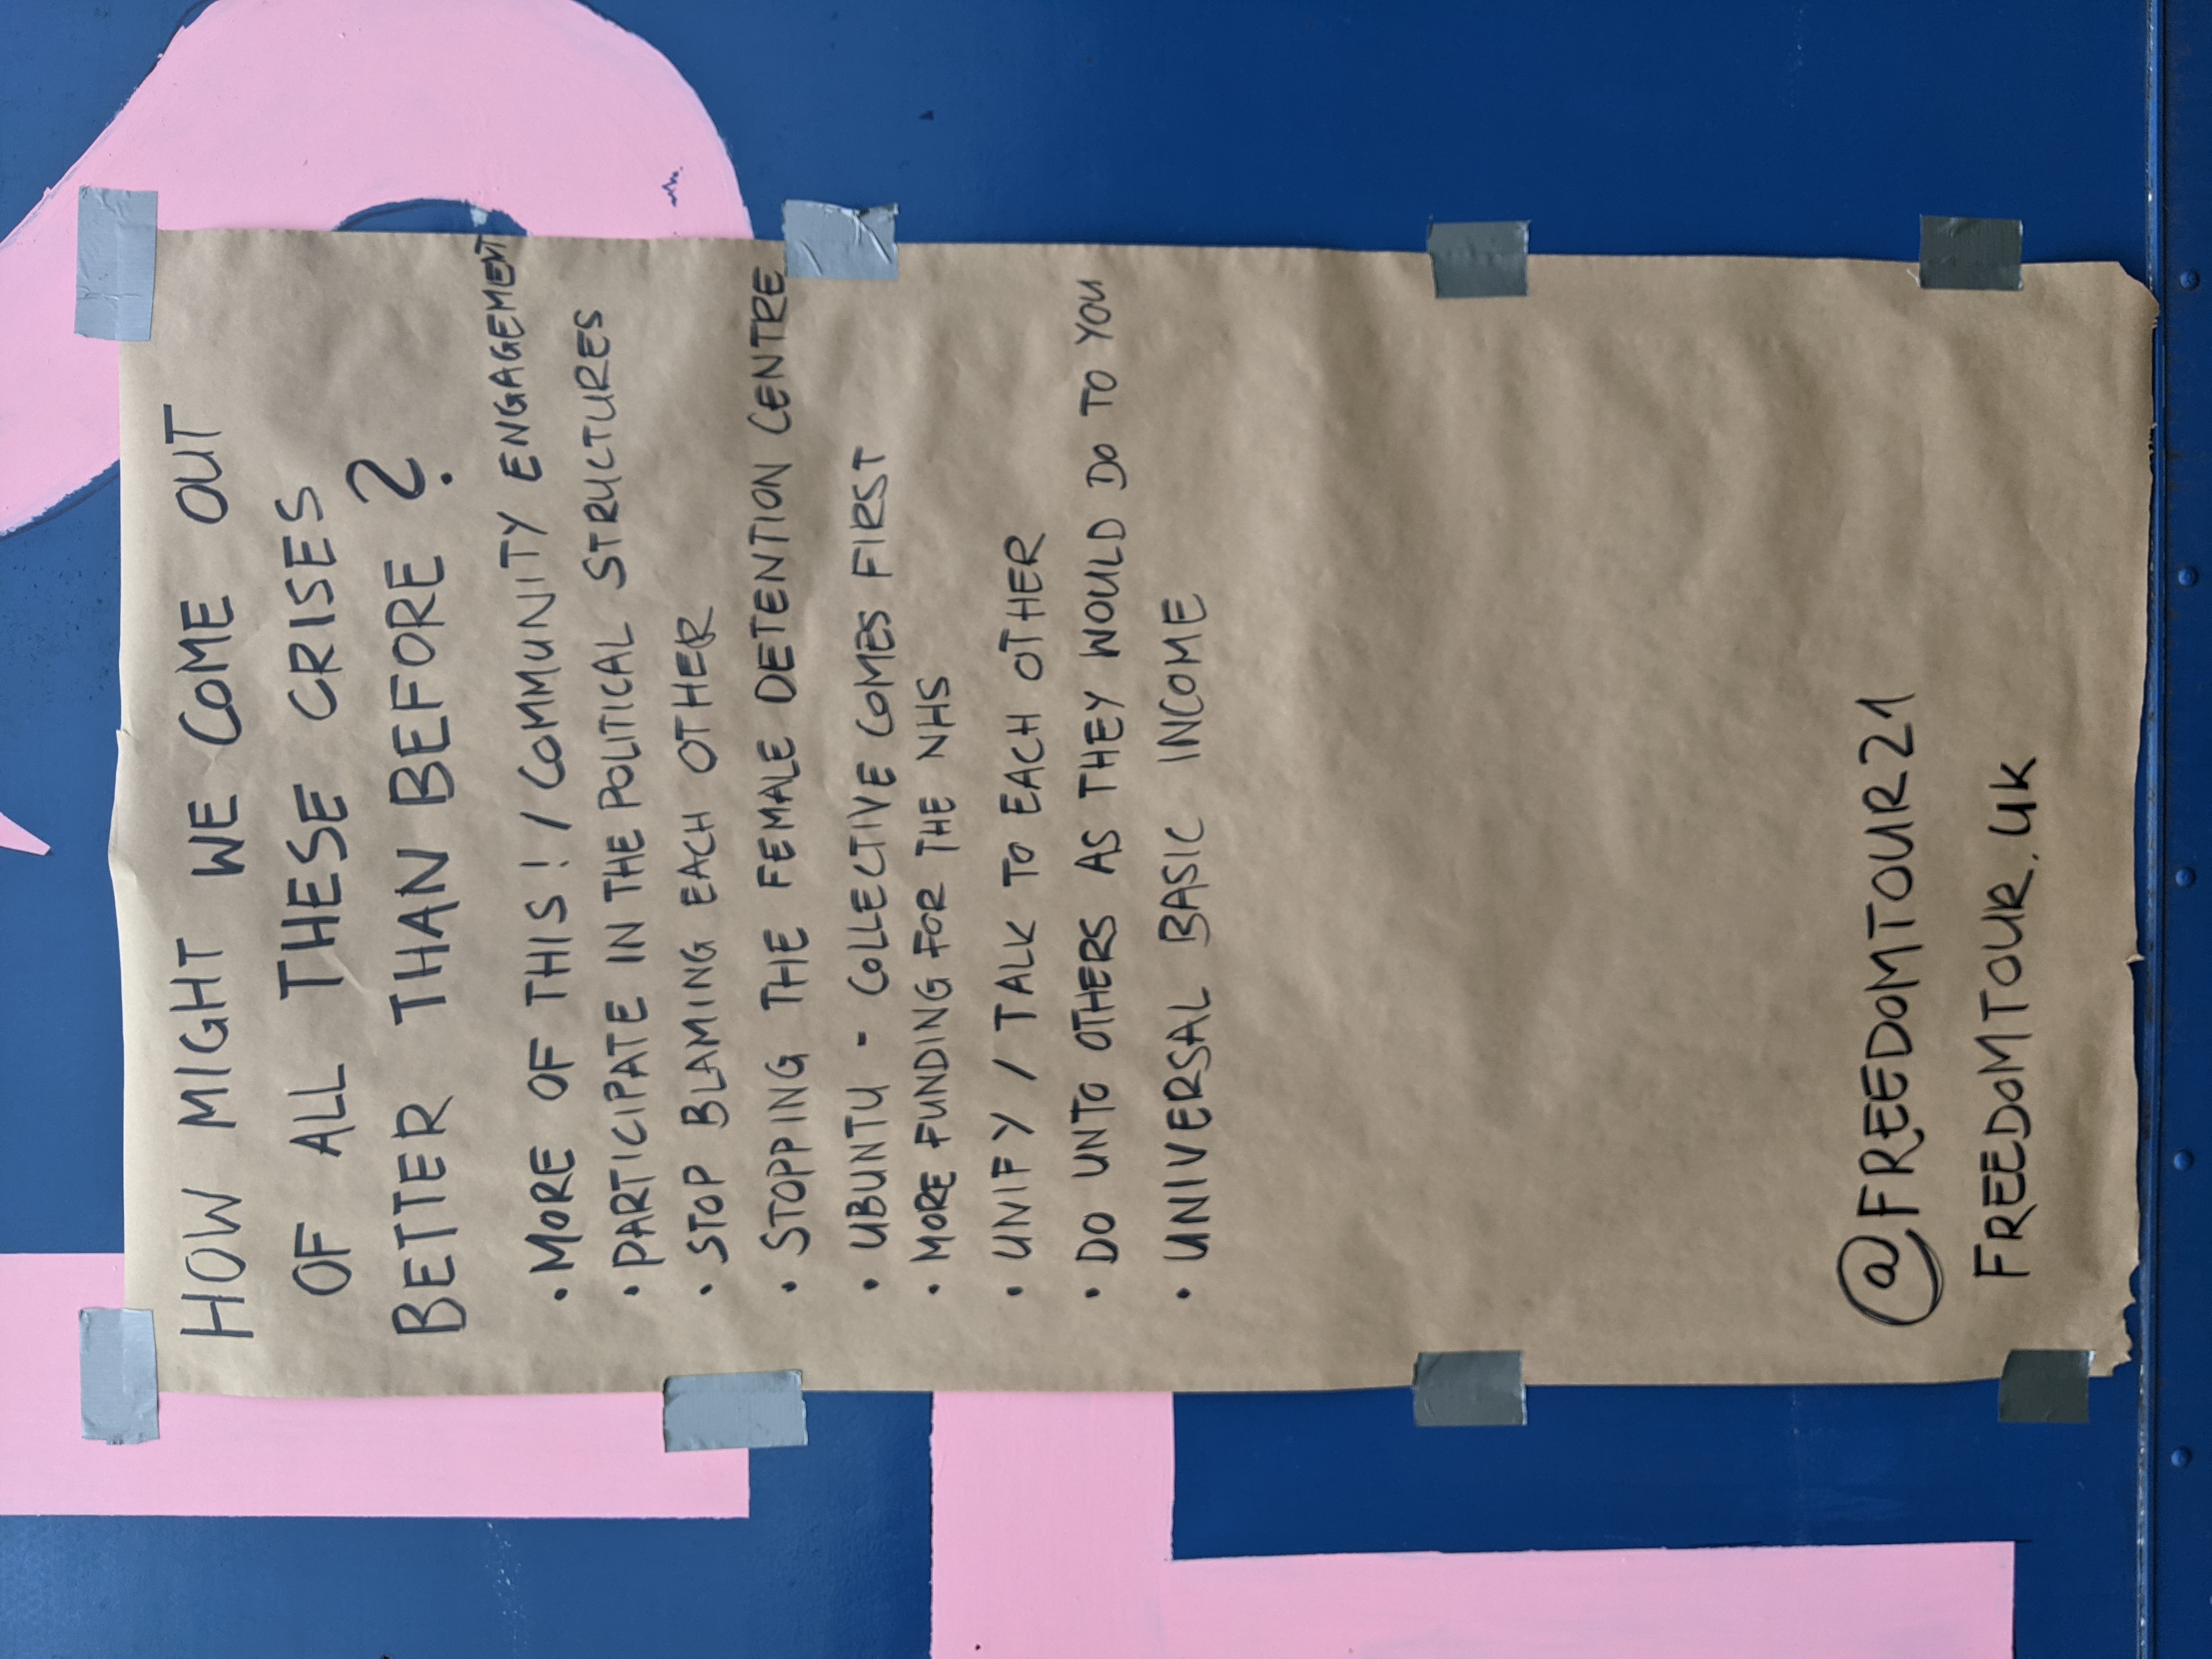 HOW MIGHT WE COME OUT
OF ALL THESE CRISES
BETTER THAN BEFORE ?
• MORE OF THIS! / COMMUNITY ENGAGEMENT
• PARTICIPATE IN THE POLITICAL STRUCTURES
• STOP BLAMING EACH OTHER
• STOPPING THE FEMALE DETENTION CENTRE
• UBUNTU - COLLECTIVE COMES FIRST
• MORE FUNDING FOR THE NHS
• UNIFY / TALK TO EACH OTHER
• DO UNTO OTHERS AS THEY WOULD DO TO YOU
• UNIVERSAL BASIC INCOME
@FREEDOMTOUR21
FREEDOMTOUR.UK